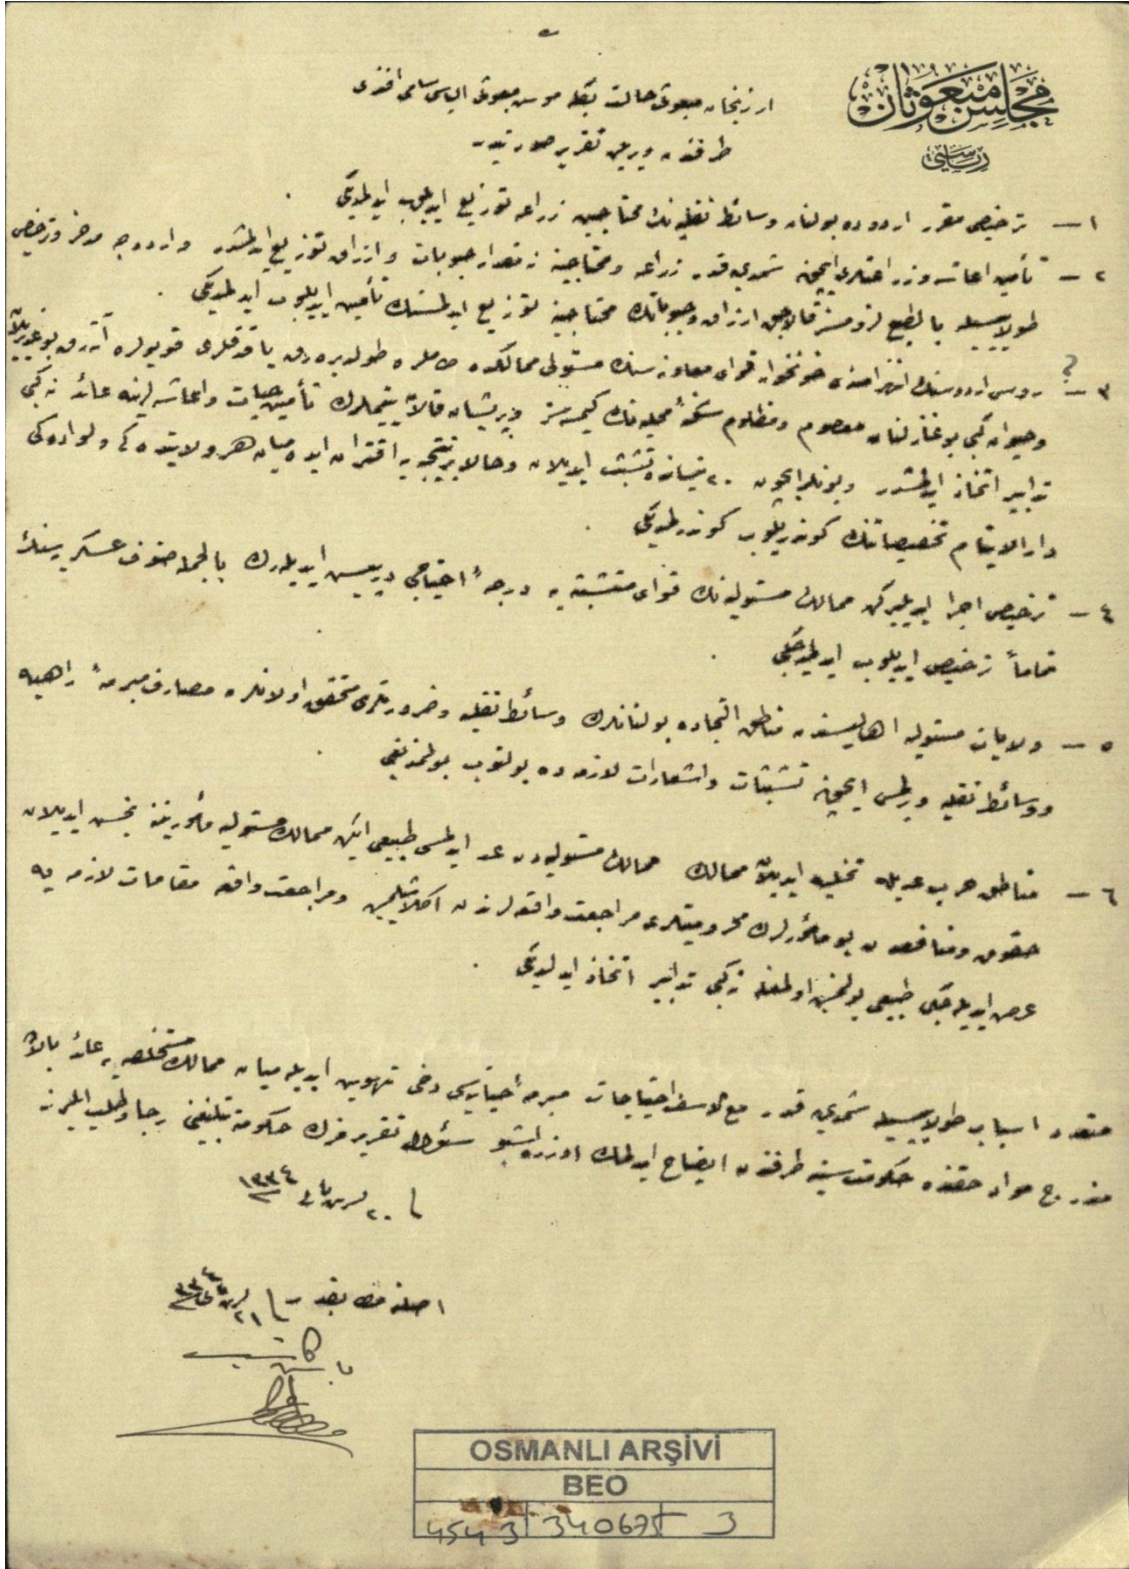 مجلس مبعوثان
رياستی
ارزنجان مبعوثی حالت بكله موش مبعوثی الياس سامی افندی
طرفندن ويريلن تقرير صورتيدر
١ — ترخيصی مقرر اردوده بولنان وسائط نقليه نك محتاجين زراعه توزيع ايديلوب ايدلمديكی
٢ — تأمين اعاشه وزراعتلری ايچون شمدی يه قدر زراعه ومحتاجينه نه مقدار حبوبات وارزاق توزيع ايدلمشدر واردوجه مدخر وترخيص
طولاييسيله بالطبع لزومسز قالاجق ارزاق وحبوباتك محتاجينه توزيع ايدلمسنك تأمين ايديلوب ايدلمديكی
؟
٣ — روس اردوسنك انهزامنده خونخوار قوای معاونه سنك مستولی ممالكده جامعلره طولديره رق ياقدقلری قويولره آته رق بوغديرلان
وحيوان كبی بوغازلنان معصوم ومظلوم سكنهٔ محليه نك كيمسه سز وپريشان قالان يتيملرك تأمين حيات واعاشه لرينه عائد نه كبی
تدابير اتخاذ ايدلمشدر وبونلر ايچون ٢٠ نيسانده تشبث ايديلان وحالا بر نتيجه يه اقتران ايده ميان هر ولايتده كی ولواده كی
دار الايتام تخصيصاتنك كوندريلوب كوندرلمديكی
٤ — ترخيص اجرا ايديليركن ممالك مستوليه نك قوای متشبثه يه درجهٔ احتياجی درپيش ايديله رك بالجمله صنوف عسكريه سنك
تماماً ترخيص ايديلوب ايدلميه جكی
٥ — ولايات مستوليه اهاليسندن مناطق التجاده بولنانلرك وسائط نقليه وضرورتلری متحقق اولانلره مصارف مبرمهٔ راهيه
ووسائط نقليه ويرلمسی ايچون تشبثات واشعارات لازمه ده بولنوب بولنمديغی
٦ — مناطق حرب عديله تخليه ايديلان ممالك ممالك مستوليه دن عد ايدلمسی طبيعی ايكن ممالك مستوليه مأمورينه بخش ايديلان
حقوق ومنافعدن بو مأمورلرك محروميتلری مراجعت واقعه لرندن اكلاشلمش ومراجعت واقعه مقامات لازمه يه
عرض ايديله جكی طبيعی بولنمش اولمغله نه كبی تدابير اتخاذ ايدلديكی
متعدد اسباب طولاييسيله شمدی يه قدر مع التأسف احتياجات مبرمهٔ حياتيه سی دخی تهوين ايديله ميان ممالك مستخلصه يه عائد بالاده
مندرج مواد حقنده حكومت سنيه طرفندن ايضاح ايدلمك اوزره اشبو سؤال تقريرمزك حكومته تبليغنی رجا وطلب ايلرز
٢٠ تشرين ثانی ١٣٣٤
اصلنه مطابقدر ٢١ تشرين ثانی ٣٣٤
باش كاتب
OSMANLI ARŞİVİ
BEO
4543 340675 3